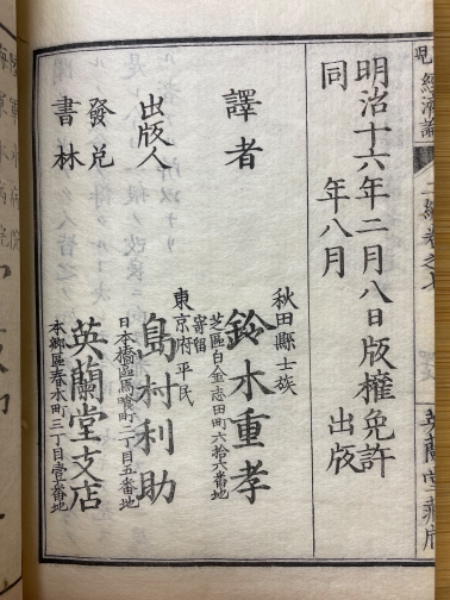 經濟論
二編卷之七
英蘭堂藏版
明治十六年二月八日版權免許
同年八月出版
譯者
秋田縣士族
鈴木重孝
芝區白金志田町六拾六番地
寄留
出版人
東京府平民
島村利助
日本橋區馬喰町二丁目五番地
發兌
書林
英蘭堂支店
本郷區春木町三丁目壹番地